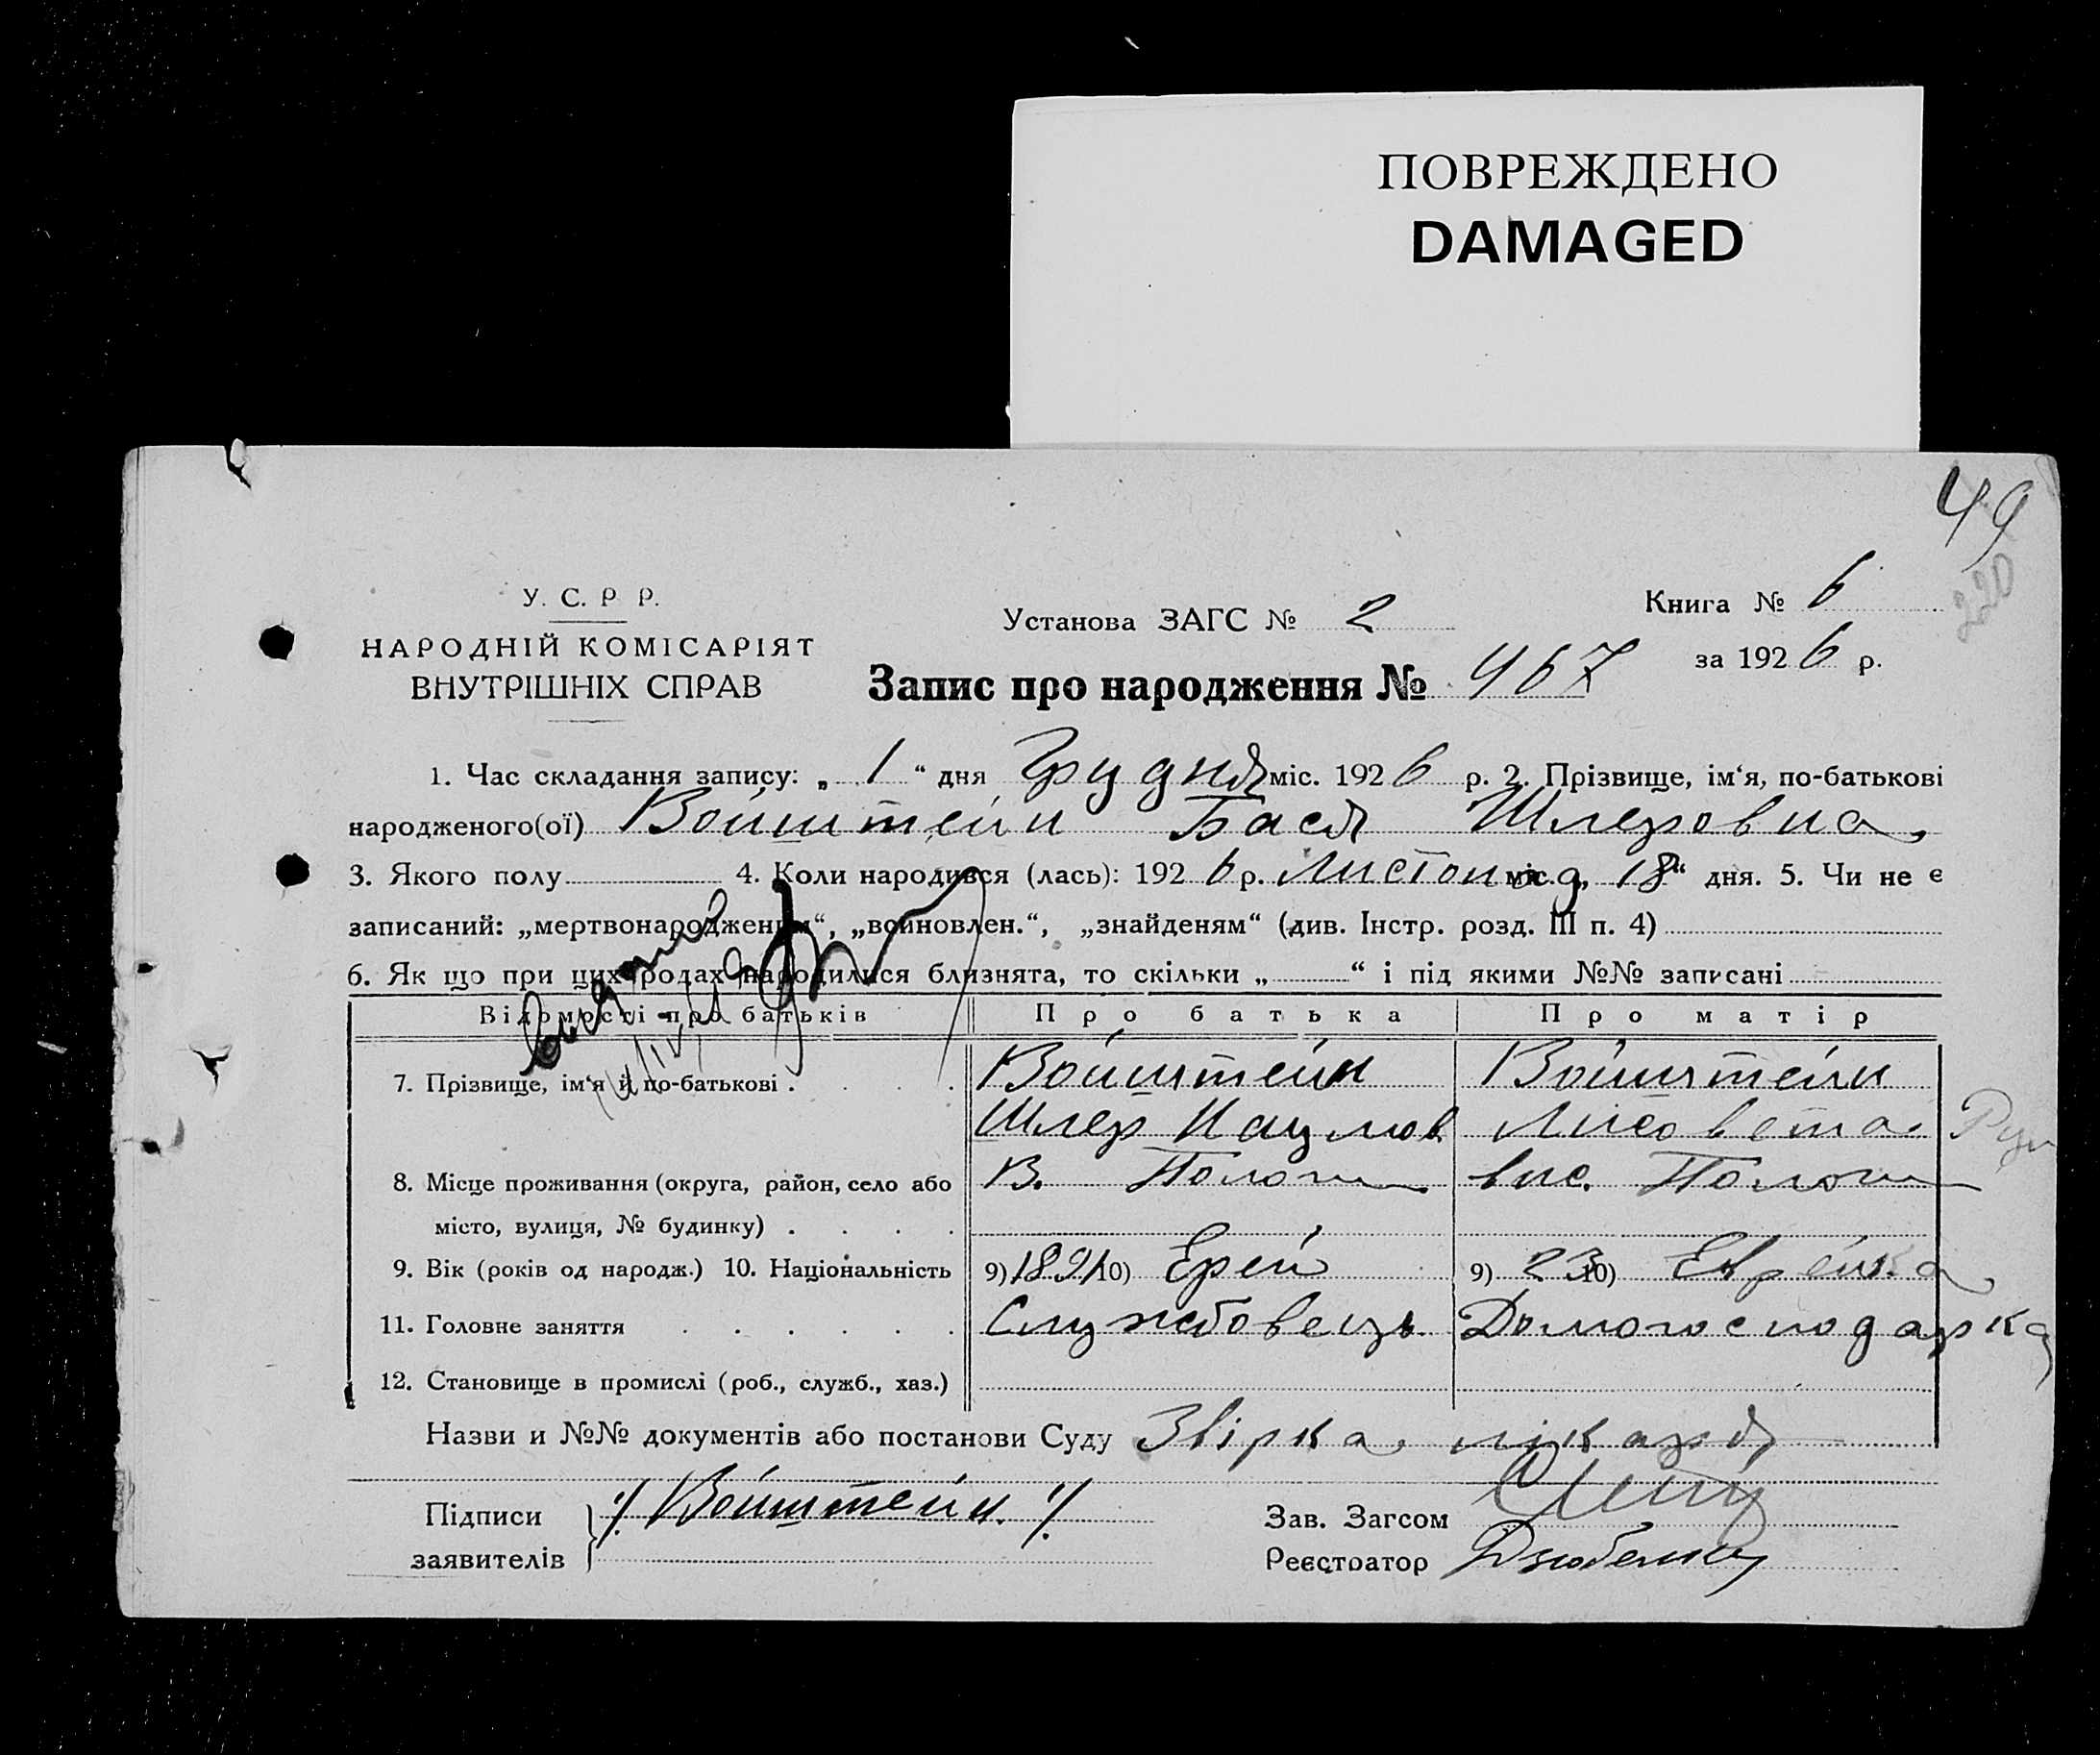 ПОВРЕЖДЕНО
DAMAGED
49
220
У. С. Р Р.
НАРОДНІЙ КОМІСАРІЯТ
ВНУТРІШНІХ СПРАВ
Установа ЗАГС № 2
Книга № 6
за 1926 р.
Запис про народження № 467
1. Час складання запису: „ 1 “ дня Грудня міс. 1926 р. 2. Прізвище, ім‘я, по-батькові
народженого(ої) Войштейн Бася Шлеровна
3. Якого полу 4. Коли народився (лась): 1926 р. Листопад міс. „ 18 “ дня. 5. Чи не є
записаний: „мертвонародженям“, „војновлен.“, „знайденям“ (див. Інстр. розд. III п. 4)
6. Як що при цих родах народилися близнята, то скільки „ “ і під якими №№ записані
Відомості про батьків Про батька Про матір
7. Прізвище, ім‘я й по-батькові . . . . Войштейн Войштейн
Шлер Наумов
8. Місце проживання (округа, район, село або В. Пологи вис. Пологи
місто, вулиця, № будинку) . . . .
9. Вік (років од народж.) 10. Національність 9) 1891 10) Ерей 9) 23 10) Еврейка
11. Головне заняття . . . . . . Службовець Домогосподарка
12. Становище в промислі (роб., служб., хаз.)
Назви и №№ документів або постанови Суду Звірка лікаря
Підписи /Войштейн./
заявителів
Зав. Загсом
Реєстратор Дзюбенко